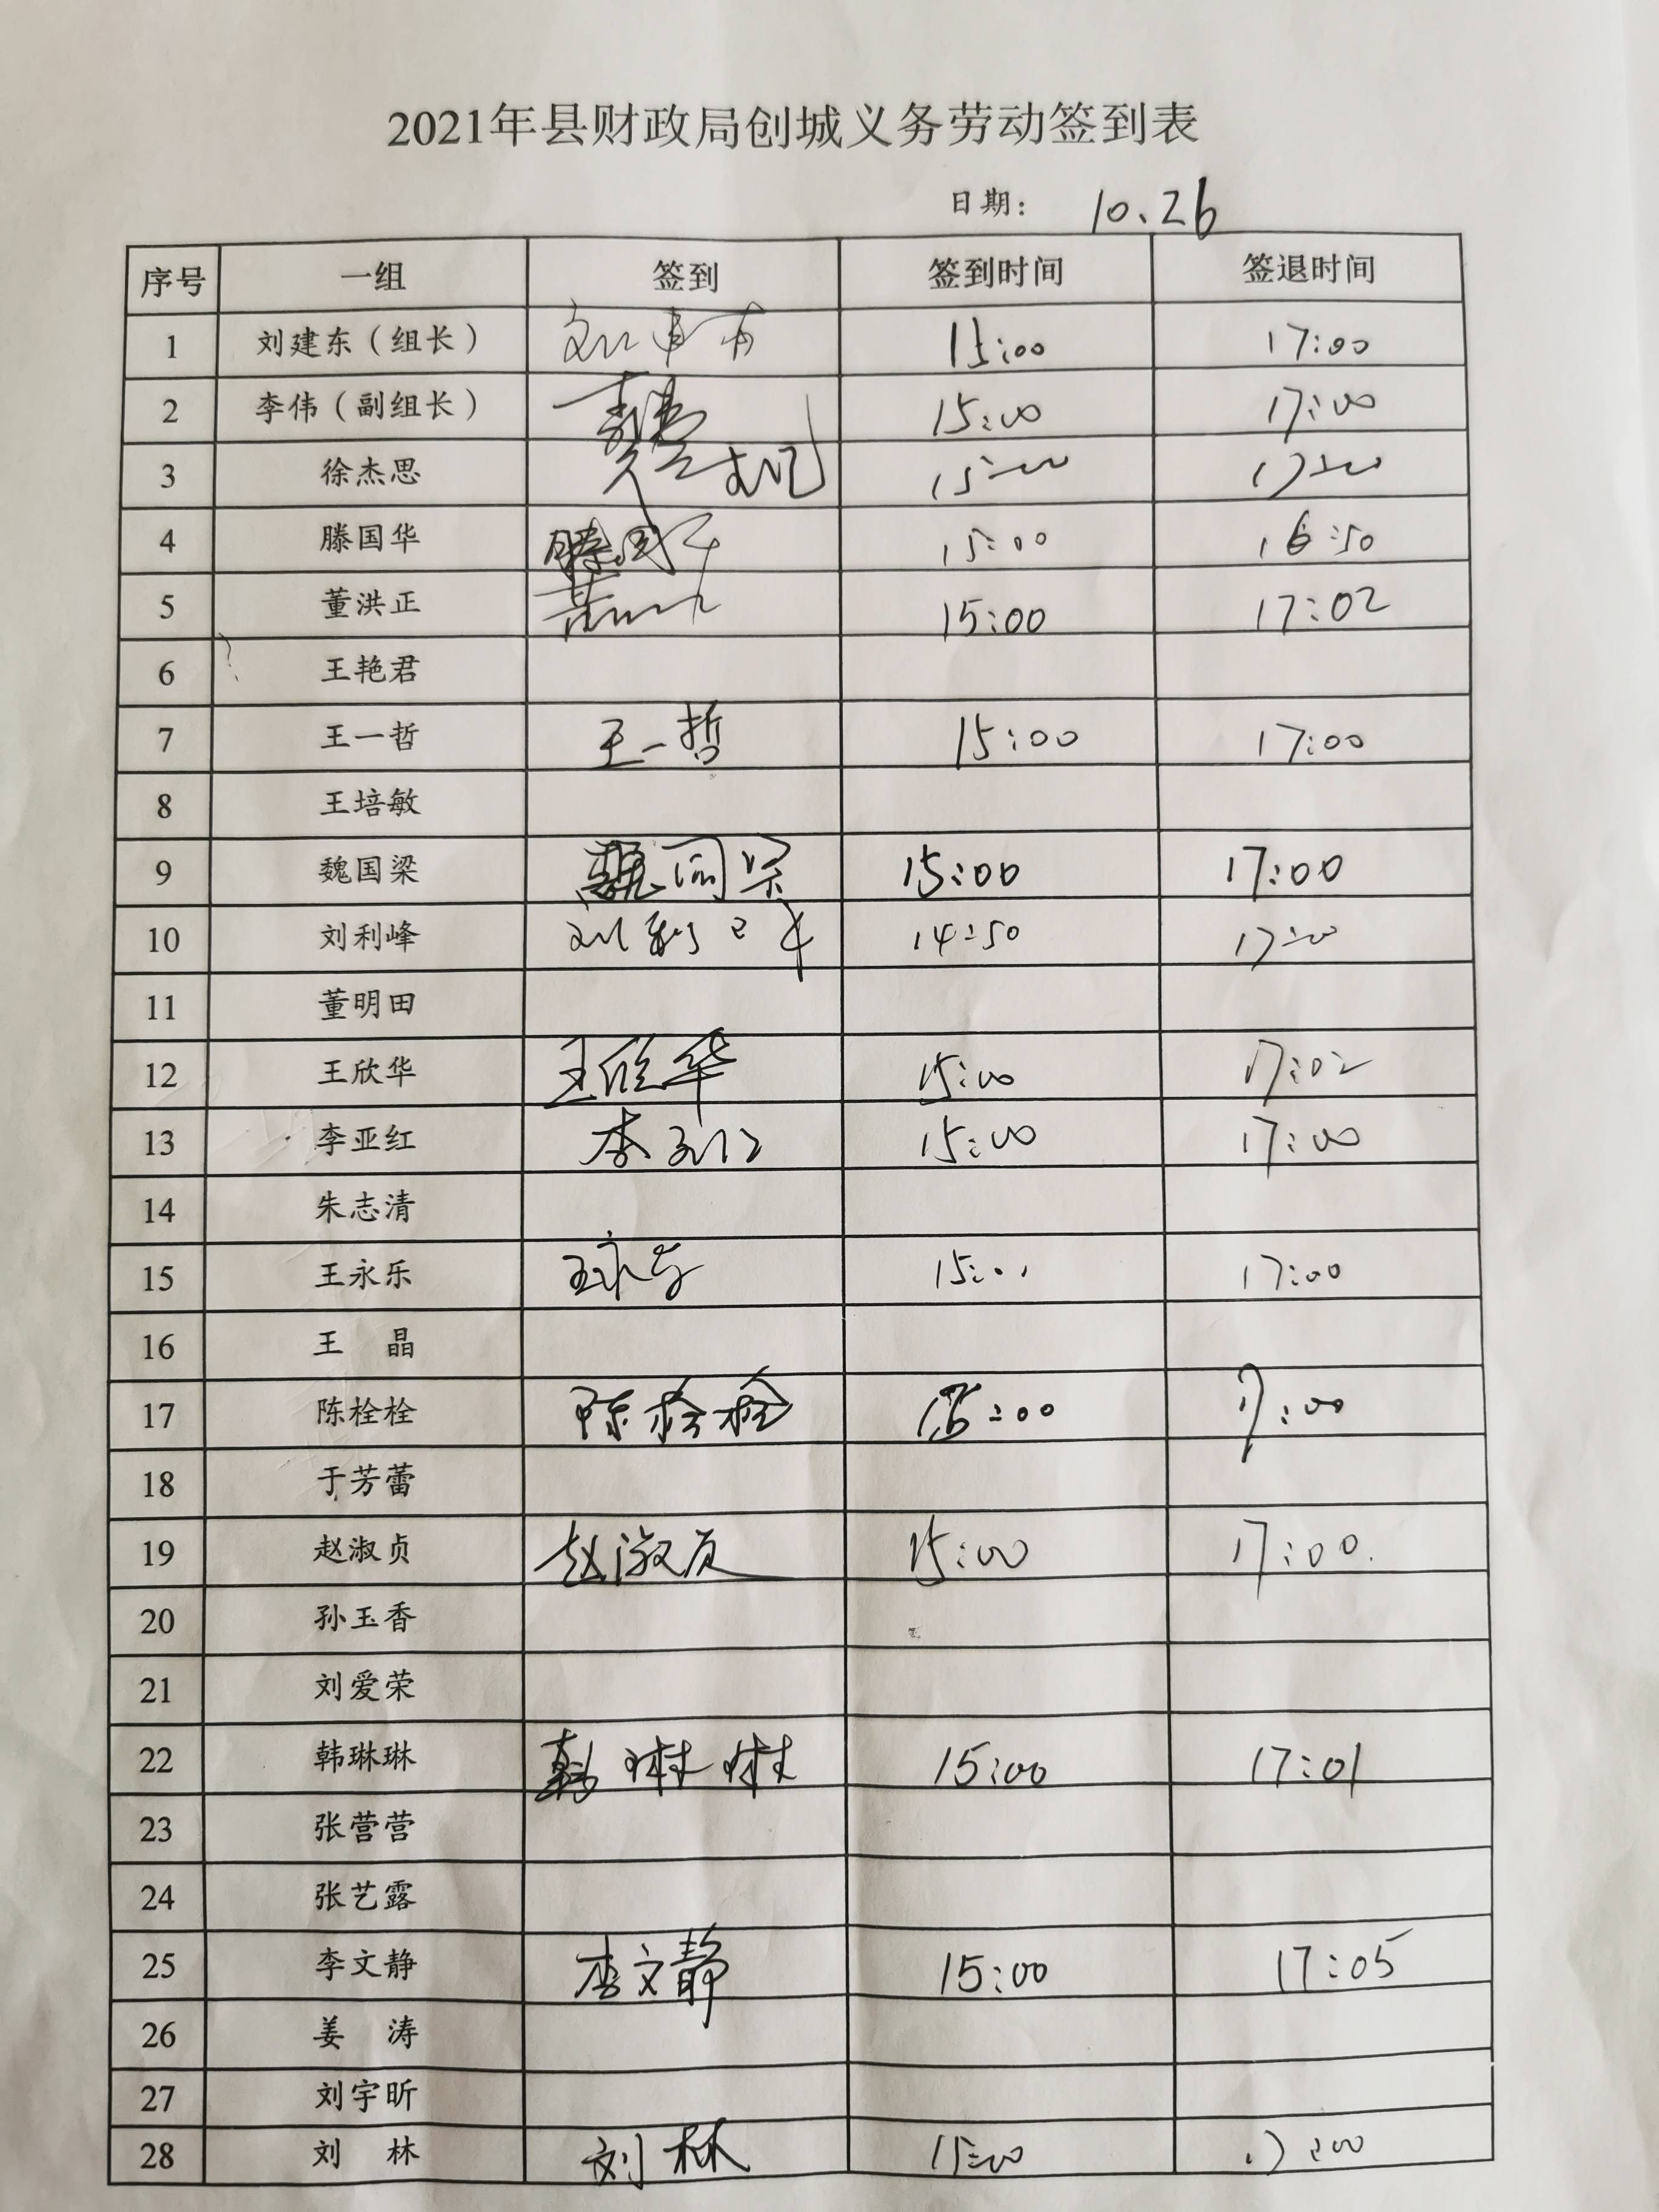 2021年县财政局创城义务劳动签到表
日期： 10.26
序号 一组 签到 签到时间 签退时间
1 刘建东（组长） 15:00 17:00
2 李伟（副组长） 15:00 17:00
3 徐杰思 15:00 17:00
4 滕国华 滕国华 15:00 16:50
5 董洪正 15:00 17:02
6 王艳君
7 王一哲 王一哲 15:00 17:00
8 王培敏
9 魏国梁 魏国梁 15:00 17:00
10 刘利峰 刘利峰 14:50 17:00
11 董明田
12 王欣华 王欣华 15:00 17:02
13 李亚红 李亚红 15:00 17:00
14 朱志清
15 王永乐 王永乐 15:01 17:00
16 王 晶
17 陈栓栓 陈栓栓 17:00
18 于芳蕾
19 赵淑贞 赵淑贞 15:00 17:00
20 孙玉香
21 刘爱荣
22 韩琳琳 韩琳琳 15:00 17:01
23 张营营
24 张艺露
25 李文静 李文静 15:00 17:05
26 姜 涛
27 刘宇昕
28 刘 林 刘林 15:00 17:00